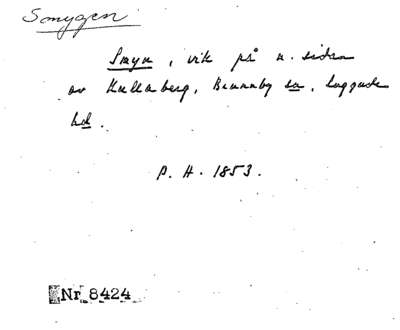 Smygen
Smyn, vik på n. sidan
av Kullaberg, Brunnby sn, Luggude
hd.
P. H. 1853.
Nr 8424